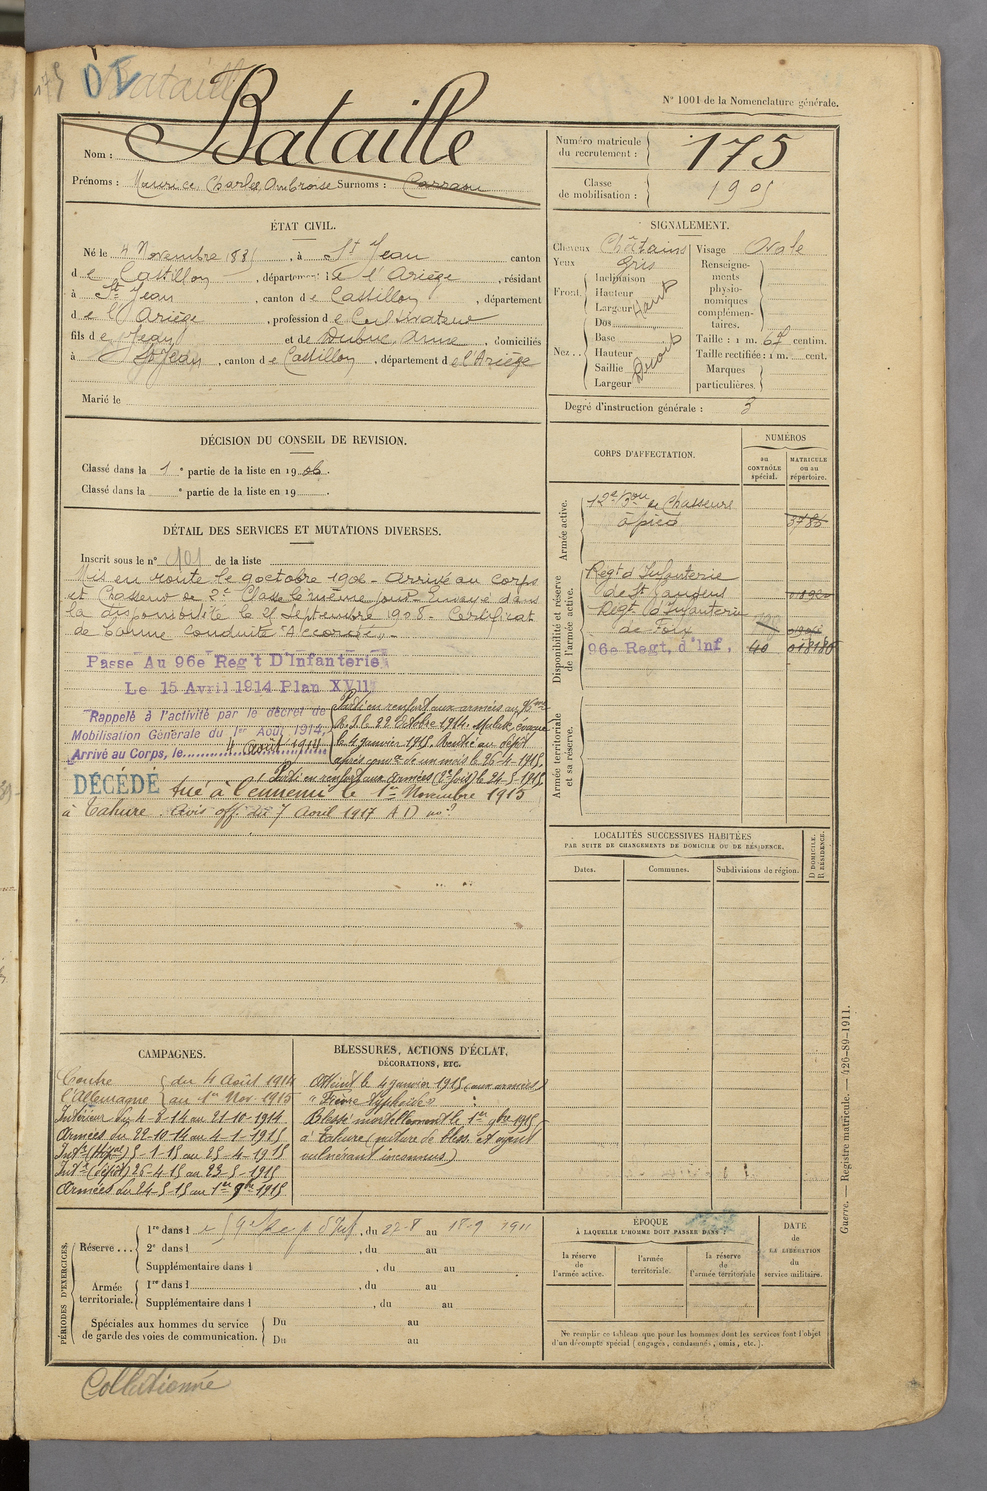 Bataille
N° 1001 de la Nomenclature générale.
Nom : Bataille
Prénoms : Maurice Charles Ambroise Surnoms :
Numéro matricule du recrutement : 175
Classe de mobilisation : 1905
ÉTAT CIVIL.
Né le 4 Novembre 1885, à St Jean canton
de Castillon, département de l'Ariège, résidant
à St Jean, canton de Castillon, département
de l'Ariège, profession de Cultivateur
fils de Jean et de Dubuc Anne, domiciliés
à St Jean, canton de Castillon, département de l'Ariège
Marié le
SIGNALEMENT.
Cheveux Châtains
Yeux Gris
Front
Inclinaison
Hauteur
Largeur
Haut
Nez
Dos
Base
Hauteur
Saillie
Largeur
Droit
Visage Ovale
Renseignements physionomiques complémentaires.
Taille : 1 m. 67 centim.
Taille rectifiée : 1 m. cent.
Marques particulières.
Degré d'instruction générale : 3
DÉCISION DU CONSEIL DE REVISION.
Classé dans la 1e partie de la liste en 1906.
Classé dans la e partie de la liste en 19 .
DÉTAIL DES SERVICES ET MUTATIONS DIVERSES.
Inscrit sous le n° 101 de la liste
Mis en route le 9 octobre 1906 - Arrivé au corps
et Chasseur de 2e Classe le même jour. Envoyé dans
la disponibilité le 25 Septembre 1908. Certificat
de bonne conduite "Accordé" -
Passé Au 96e Reg't D'Infanterie
Le 15 Avril 1914 Plan XVII
Rappelé à l'activité par le décret de
Mobilisation Générale du 1er Août 1914,
Arrivé au Corps, le 4 août 1914
Parti en renfort aux armées au 96ème
R.I. le 22 Octobre 1914. Malade évacué
le 4 janvier 1915. Rentré au dépôt
après conv.ce de un mois le 26-4-1915.
Parti en renfort aux armées (2e fois) le 24-5-1915
DÉCÉDÉ tué à l'ennemi le 1er Novembre 1915
à Tahure. Avis off. du 7 Avril 1917
CORPS D'AFFECTATION.
NUMÉROS
au CONTRÔLE spécial.
MATRICULE ou au répertoire.
Armée active.
12e Bon de Chasseurs
à pied 3785
Disponibilité et réserve de l'armée active.
Régt d'Infanterie
de St Gaudens
Régt d'Infanterie
de Foix
96e Regt, d'Inf, 40 018186
Armée territoriale et sa réserve.
LOCALITÉS SUCCESSIVES HABITÉES
PAR SUITE DE CHANGEMENTS DE DOMICILE OU DE RÉSIDENCE.
Dates.
Communes.
Subdivisions de région.
D DOMICILE.
R RÉSIDENCE.
CAMPAGNES.
Contre l'Allemagne
du 4 Août 1914
au 1er Nov 1915
Intérieur du 4-8-14 au 21-10-1914
Armées du 22-10-14 au 4-1-1915
Intr (Hôpal) 5-1-15 au 25-4-1915
Intr (dépôt) 26-4-15 au 23-5-1915
Armées du 24-5-15 au 1er 9bre 1915
BLESSURES, ACTIONS D'ÉCLAT,
DÉCORATIONS, ETC.
Atteint le 4 janvier 1915 (aux armées)
"Fièvre Typhoïde"
Blessé mortellement le 1er 9bre 1915
à Tahure (nature de bless. et agent
vulnérant inconnus)
PÉRIODES D'EXERCICES.
Réserve ...
1re dans l , du 22-8 au 18-9 1911
2e dans l , du au
Supplémentaire dans l , du au
Armée territoriale.
1re dans l , du au
Supplémentaire dans l , du au
Spéciales aux hommes du service de garde des voies de communication.
Du au
Du au
ÉPOQUE
À LAQUELLE L'HOMME DOIT PASSER DANS :
la réserve de l'armée active.
l'armée territoriale.
la réserve de l'armée territoriale
DATE de LA LIBÉRATION du service militaire.
Ne remplir ce tableau que pour les hommes dont les services font l'objet
d'un décompte spécial (engagés, condamnés, omis, etc.).
Guerre. — Registre matricule. — 426-89-1911.
Collationné